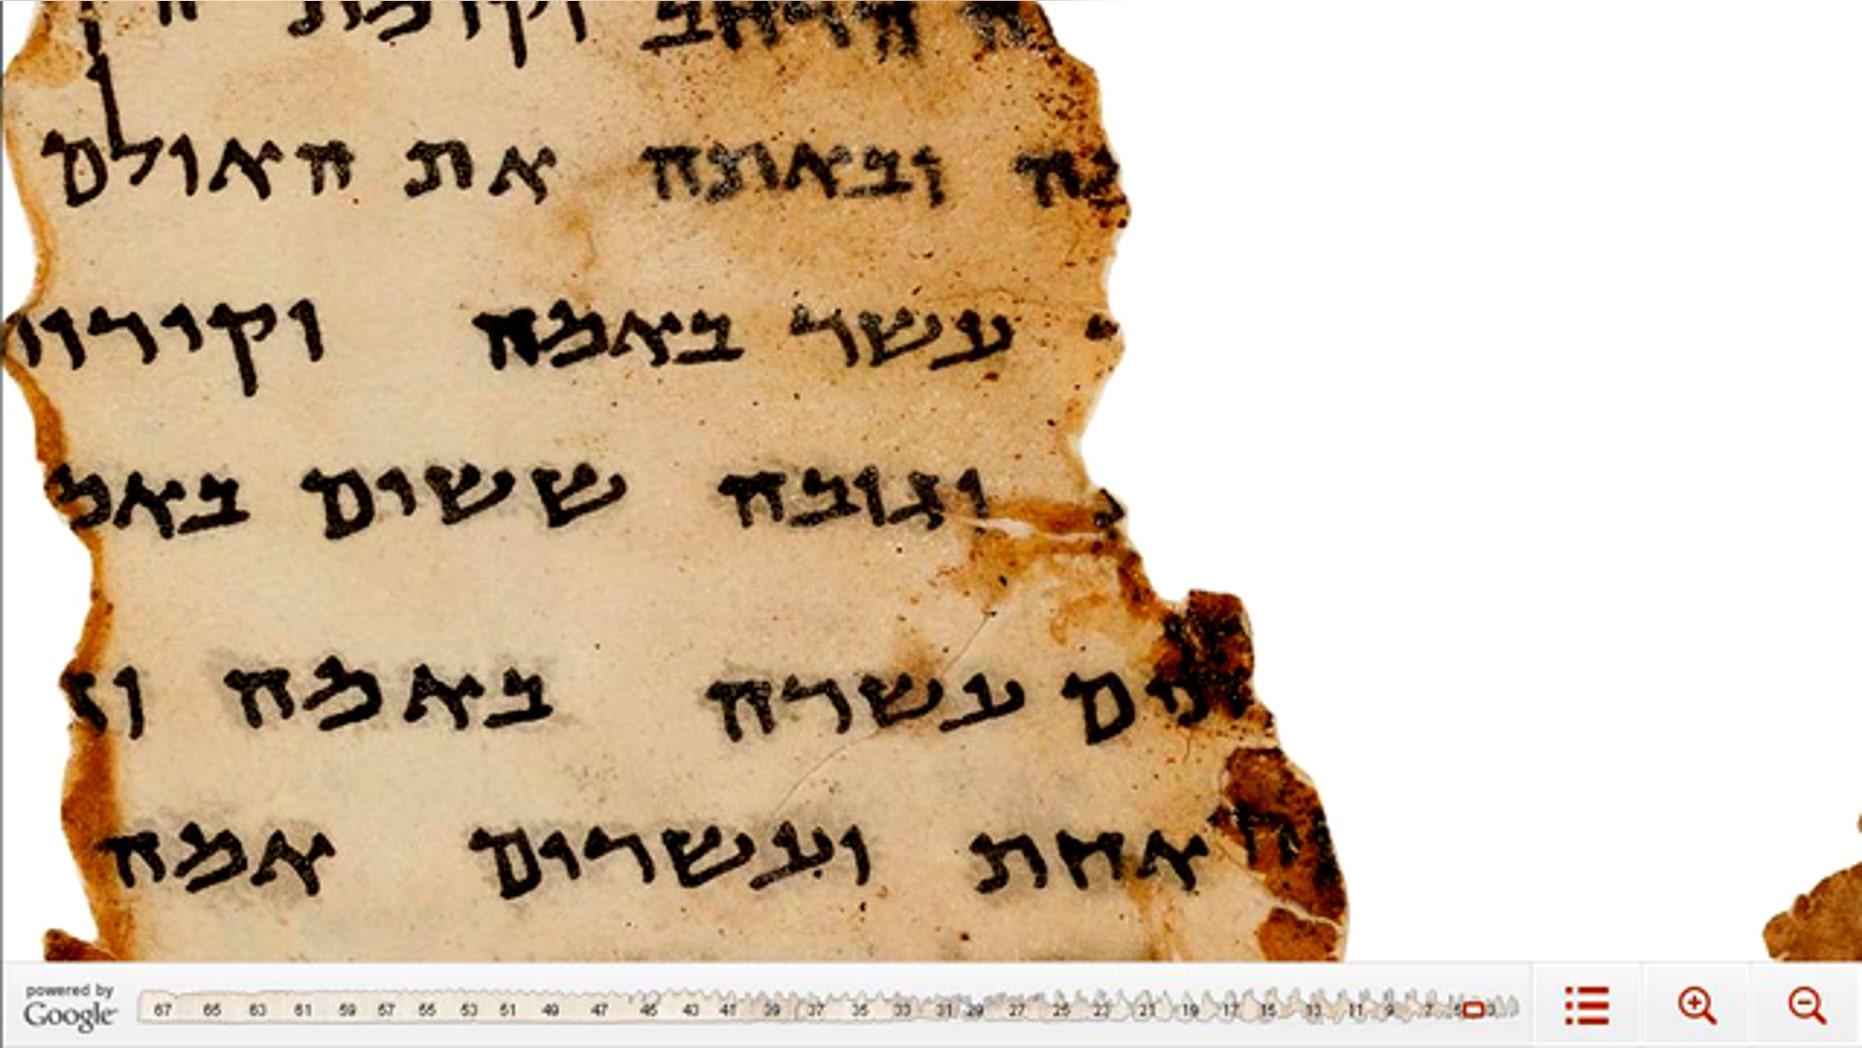 הרחב וקומת
נה ובאתה את האולם
עשר באמה וקירו
וגובה ששים באמ
ים עשרה באמה ו
אחת ועשרים אמה
powered by
Google
67 65 63 61 59 57 55 53 51 49 47 45 43 41 39 37 35 33 31 29 27 25 23 21 19 17 15 13 11 9 7 5 3